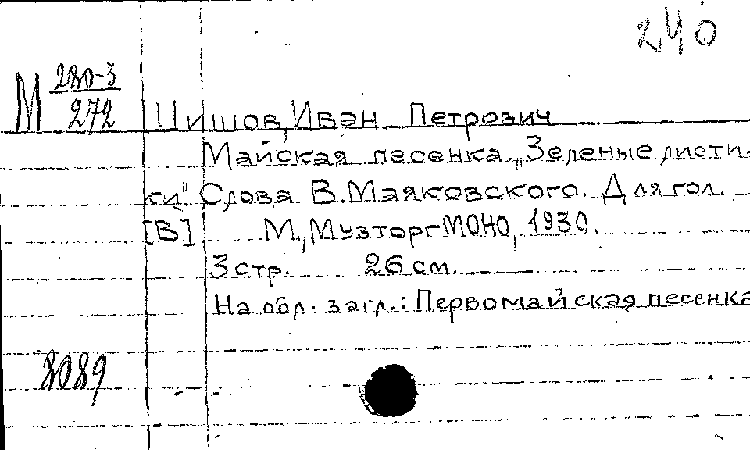 240
М 280-3
272
Шишов, Иван Петрович
Майская песенка „Зеленые листи-
ки“ Слова В. Маяковского. Для гол.
[В] М., Музторг МОНО, 1930.
3 стр. 26 см.
На обл. загл.: Первомайская песенка
8089